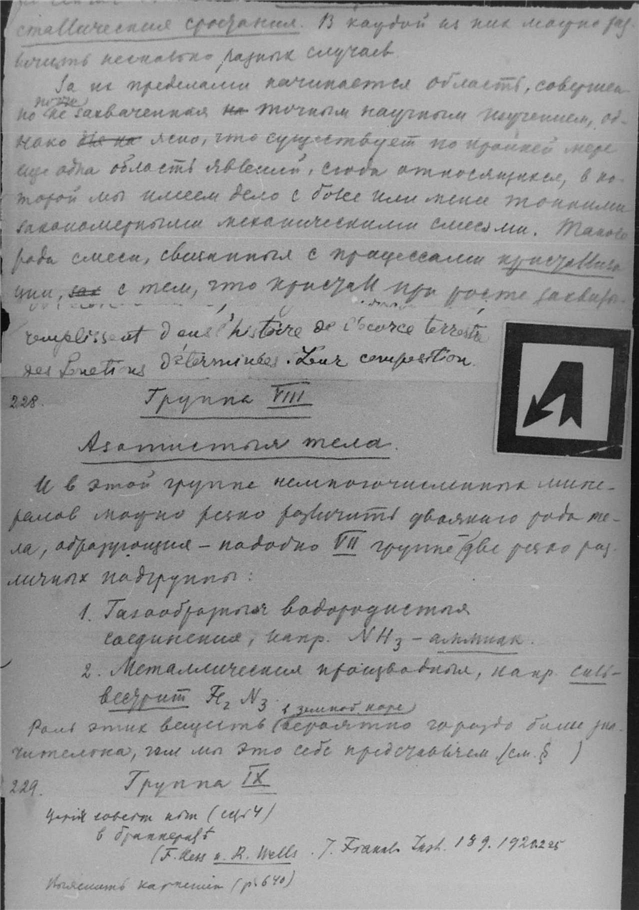 сталлическия срастания. В каждой из них можно раз
личить несколько разных случаев.
За их пределами начинается область, совершен
но не захваченная точным научным изучением, од-
нако ясно, что существует по крайней мере
еще одна область явлений, сюда относящихся, в ко-
торой мы имеем дело с более или менее тонкими
закономерными механическими смесями. Такого
рода смеси, связанныя с процессами кристаллиза
ции, с тем, что кристалл при росте захваты-
remplissent dans l'histoire de l'écorce terrestre
des fonctions déterminées. Leur composition
228. Группа VIII
Азотистыя тела.
И в этой группе немногочисленных мине-
ралов можно резко различить двоякаго рода те-
ла, образующия – подобно VII группе две резко раз
личных подгруппы:
1. Газообразныя водородистыя
соединения, напр. NH3 – аммиак.
2. Металлическия производныя, напр. силь-
вестрит Fe2 N3
в земной коре
Роль этих веществ вероятно гораздо более зна
чительна, чем мы это себе представляем (см. § )
229. Группа IX
в браннерите
(F. Hess и R. Wells. J. Frankl. Inst. 189. 1920. 225